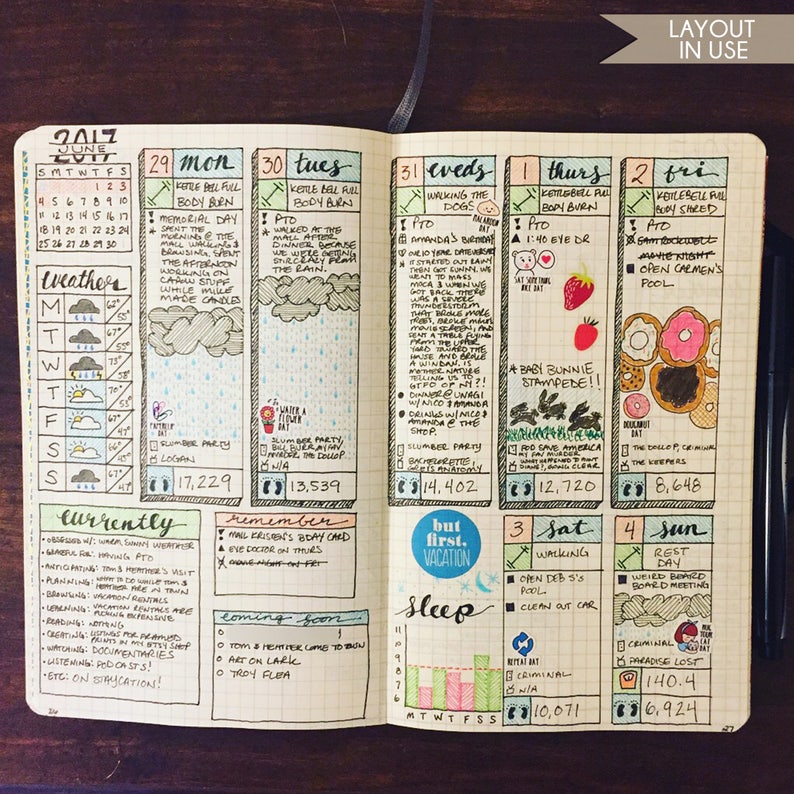 LAYOUT
IN USE
2017
JUNE
S M T W T F S
1 2 3
4 5 6 7 8 9 10
11 12 13 14 15 16 17
18 19 20 21 22 23 24
25 26 27 28 29 30
weather
M 62° 55°
T
W 73° 58°
T 70° 53°
F 67° 47°
S 66° 45°
S 67° 47°
29 mon
KETTLE BELL FULL
BODY BURN
MEMORIAL DAY
SPENT THE
MORNING @ THE
MALL WALKING &
BROWSING. SPENT
THE AFTERNOON
WORKING ON
STUFF
WHILE MILLE
MADE CANDLES
PAPERCLIP
DAY
SLUMBER PARTY
LOGAN
17,229
30 tues
KETTLEBELL FULL
BODY BURN
PTO
WALKED AT THE
MALL AFTER
DINNER BECAUSE
WE WERE GETTING
STIR CRAZY FROM
THE RAIN.
WATER A
FLOWER
DAY
SLUMBER PARTY,
BILL BURR, MY FAV
MURDER, THE DOLLOP
N/A
13,539
currently
• OBSESSED W/: WARM SUNNY WEATHER
• GRATEFUL FOR: HAVING PTO
• ANTICIPATING: TOM & HEATHER'S VISIT
• PLANNING: WHAT TO DO WHILE TOM &
HEATHER ARE IN TOWN
• BROWSING: VACATION RENTALS
• LEARNING: VACATION RENTALS ARE
FUCKING EXPENSIVE
• READING: NOTHING
• CREATING: LISTINGS FOR FRAMED
PRINTS IN MY ETSY SHOP
• WATCHING: DOCUMENTARIES
• LISTENING: PODCASTS!
• ETC: ON STAYCATION!
remember
! MAIL KRISTEN'S BDAY CARD
▲ EYE DOCTOR ON THURS
MOVIE NIGHT ON FRI
coming soon
O TOM & HEATHER COME TO TOWN
O ART ON LARK
O TROY FLEA
26
31 weds
WALKING THE
DOGS
MACAROON
DAY
PTO
AMANDA'S BIRTHDAY
OUR 10 YEAR DATEVERSARY
IT STARTED OUT RAINY
THEN GOT SUNNY. WE
WENT TO MASS
MOCA & WHEN WE
GOT BACK THERE
WAS A SEVERE
THUNDERSTORM
THAT BROKE MORE
TREES, BROKE MIKE'S
MOVIE SCREEN, AND
SENT A TABLE FLYING
FROM THE UPPER
YARD TOWARD THE
HOUSE AND BROKE
A WINDOW. IS
MOTHER NATURE
TELLING US TO
GTFO OF NY?!
• DINNER @ UNAGI
W/ NICO & AMANDA
• DRINKS W/ NICO &
AMANDA @ THE
SHOP
SLUMBER PARTY
BACHELORETTE,
GREY'S ANATOMY
14,402
1 thurs
KETTLEBELL FULL
BODY BURN
! PTO
▲ 1:40 EYE DR
SAY SOMETHING
NICE DAY
BABY BUNNIE
STAMPEDE!!
POD SAVE AMERICA
MY FAV MURDER
WHAT HAPPENED TO
DIANE?, GOING CLEAR
12,720
2 fri
KETTLEBELL FULL
BODY SHRED
! PTO
SAM ROCKWELL
MOVIE NIGHT
OPEN CARMEN'S
POOL
DOUGHNUT
DAY
THE DOLLOP, CRIMINAL
THE KEEPERS
8,648
but
first,
VACATION
sleep
11
10
9
8
7
6
M T W T F S S
3 sat
WALKING
OPEN DEB S'S
POOL
CLEAN OUT CAR
REPEAT DAY
CRIMINAL
N/A
10,071
4 sun
REST
DAY
WEIRD BEARD
BOARD MEETING
HUG
YOUR
CAT
DAY
CRIMINAL
PARADISE LOST
140.4
6,924
27